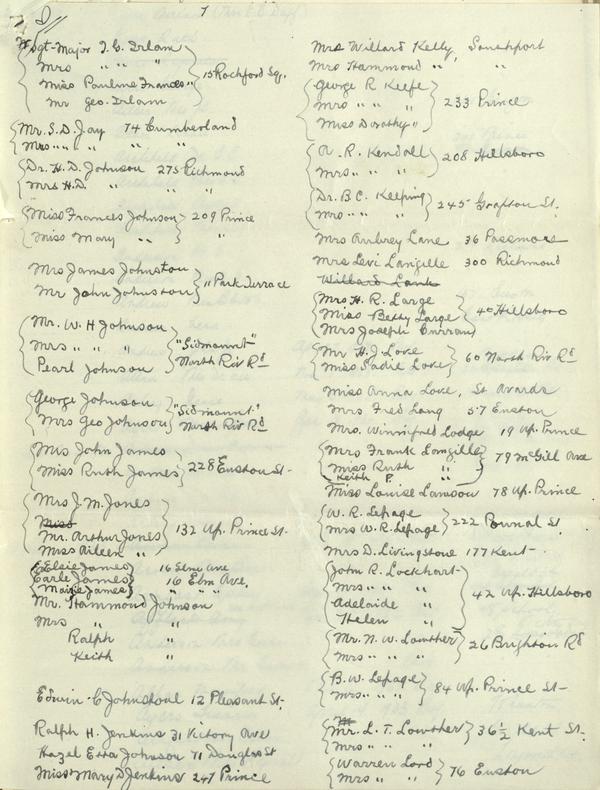 7
Sgt-Major T. C. Irlam
Mrs " " "
Miss Pauline Frances "
Mr Geo. Irlam
15 Rochford Sq.
Mr. S. D. Jay 74 Cumberland
Mrs " " "
Dr. H. D. Johnson 275 Richmond
Mrs H.D. " " "
Miss Frances Johnson
Miss Mary "
209 Prince
"
Mrs James Johnston
Mr John Johnston
11 Park Terrace
Mr. W. H Johnson
Mrs " " "
Pearl Johnson
"Sidmount"
North Riv Rd
George Johnson
Mrs Geo Johnson
"Sidmount"
North Riv Rd
Mrs John James
Miss Ruth James
228 Euston St.
Mrs J. M. Jones
Miss
Mr. Arthur Jones
Miss Aileen "
132 Up. Prince St.
Elsie James 16 Elm Ave
Earle James 16 Elm Ave.
Maize James " " "
Mr. Hammond Johnson
Mrs " "
Ralph "
Keith "
Edwin C Johnstone 12 Pleasant St.
Ralph H. Jenkins 31 Victory Ave
Hazel Etta Johnson 71 Douglas St
Miss Mary D Jenkins 247 Prince
Mrs Willard Kelly, Southport
Mrs Hammond " "
George R Keefe
Mrs " " "
Miss Dorothy "
233 Prince
A. R. Kendall
Mrs " " "
208 Hillsboro
Dr. B. C. Keeping
Mrs " " "
245 Grafton St.
Mrs Aubrey Lane 36 Passmore
Mrs Levi Langille 300 Richmond
Willard Lank
Mrs H. R. Large
Miss Betty Large
Mrs Joseph Curran
40 Hillsboro
Mr H. J Love
Miss Sadie Love
60 North Riv Rd
Miss Anna Love, St Avards
Mrs Fred Long 57 Euston
Mrs. Winnifred Lodge 19 Up. Prince
Mrs Frank Langille
Miss Ruth "
Keith P. "
79 McGill Ave
Miss Louise Lawson 78 Up. Prince
W. R. Lepage
Mrs W. R. Lepage
222 Pownal St.
Mrs D. Livingstone 177 Kent
John R. Lockhart
Mrs " " "
Adelaide "
Helen "
42 Up. Hillsboro
Mr. N. W. Lowther
Mrs " " "
26 Brighton Rd
B. W. Lepage
Mrs " " "
84 Up. Prince St
Mr. L. T. Lowther
Mrs " " "
36 1/2 Kent St.
Warren Lord
Mrs " "
76 Euston